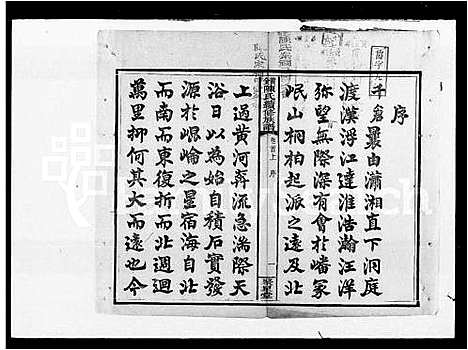 序
千倉曩由瀟湘直下洞庭
渡漢浮江達淮浩瀚汪洋
弥望無際深有會於嶓冢
岷山桐柏起派之遠及北
陳氏續修族譜
卷首上 序
一
聚星堂
上過黃河奔流急湍際天
浴日以為始自積石實發
源於崐崘之星宿海自北
而南而東復折而北週迴
萬里抑何其大而遠也今